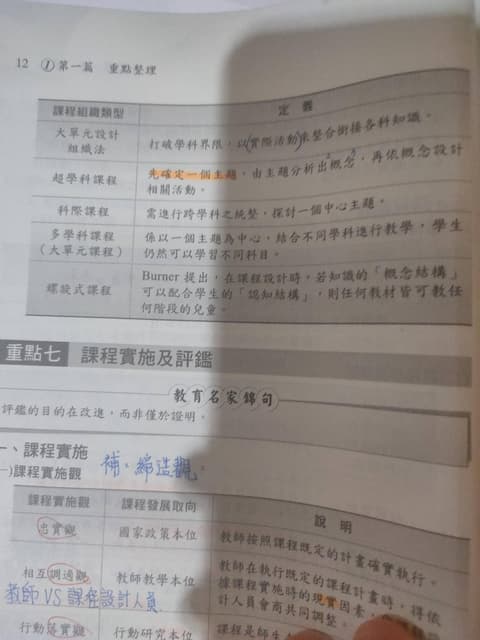 12 ① 第一篇 重點整理
課程組織類型 定義
大單元設計
組織法
打破學科界限，以實際活動來整合銜接各科知識。
超學科課程
先確定一個主題，由主題分析出概念，再依概念設計
相關活動。
科際課程 需進行跨學科之統整，探討一個中心主題。
多學科課程
（大單元課程）
係以一個主題為中心，結合不同學科進行教學，學生
仍然可以學習不同科目。
螺旋式課程
Burner 提出，在課程設計時，若知識的「概念結構」
可以配合學生的「認知結構」，則任何教材皆可教任
何階段的兒童。
重點七 課程實施及評鑑
教育名家錦句
評鑑的目的在改進，而非僅於證明。
一、課程實施
一)課程實施觀 補、締造觀
課程實施觀 課程發展取向 說明
忠實觀 國家政策本位 教師按照課程既定的計畫確實執行。
相互調適觀 教師教學本位
教師在執行既定的課程計畫時，得依
據課程實施時的現實因素，
計人員會商共同調整。
教師 VS 課程設計人員
行動落實觀 行動研究本位 課程是師生